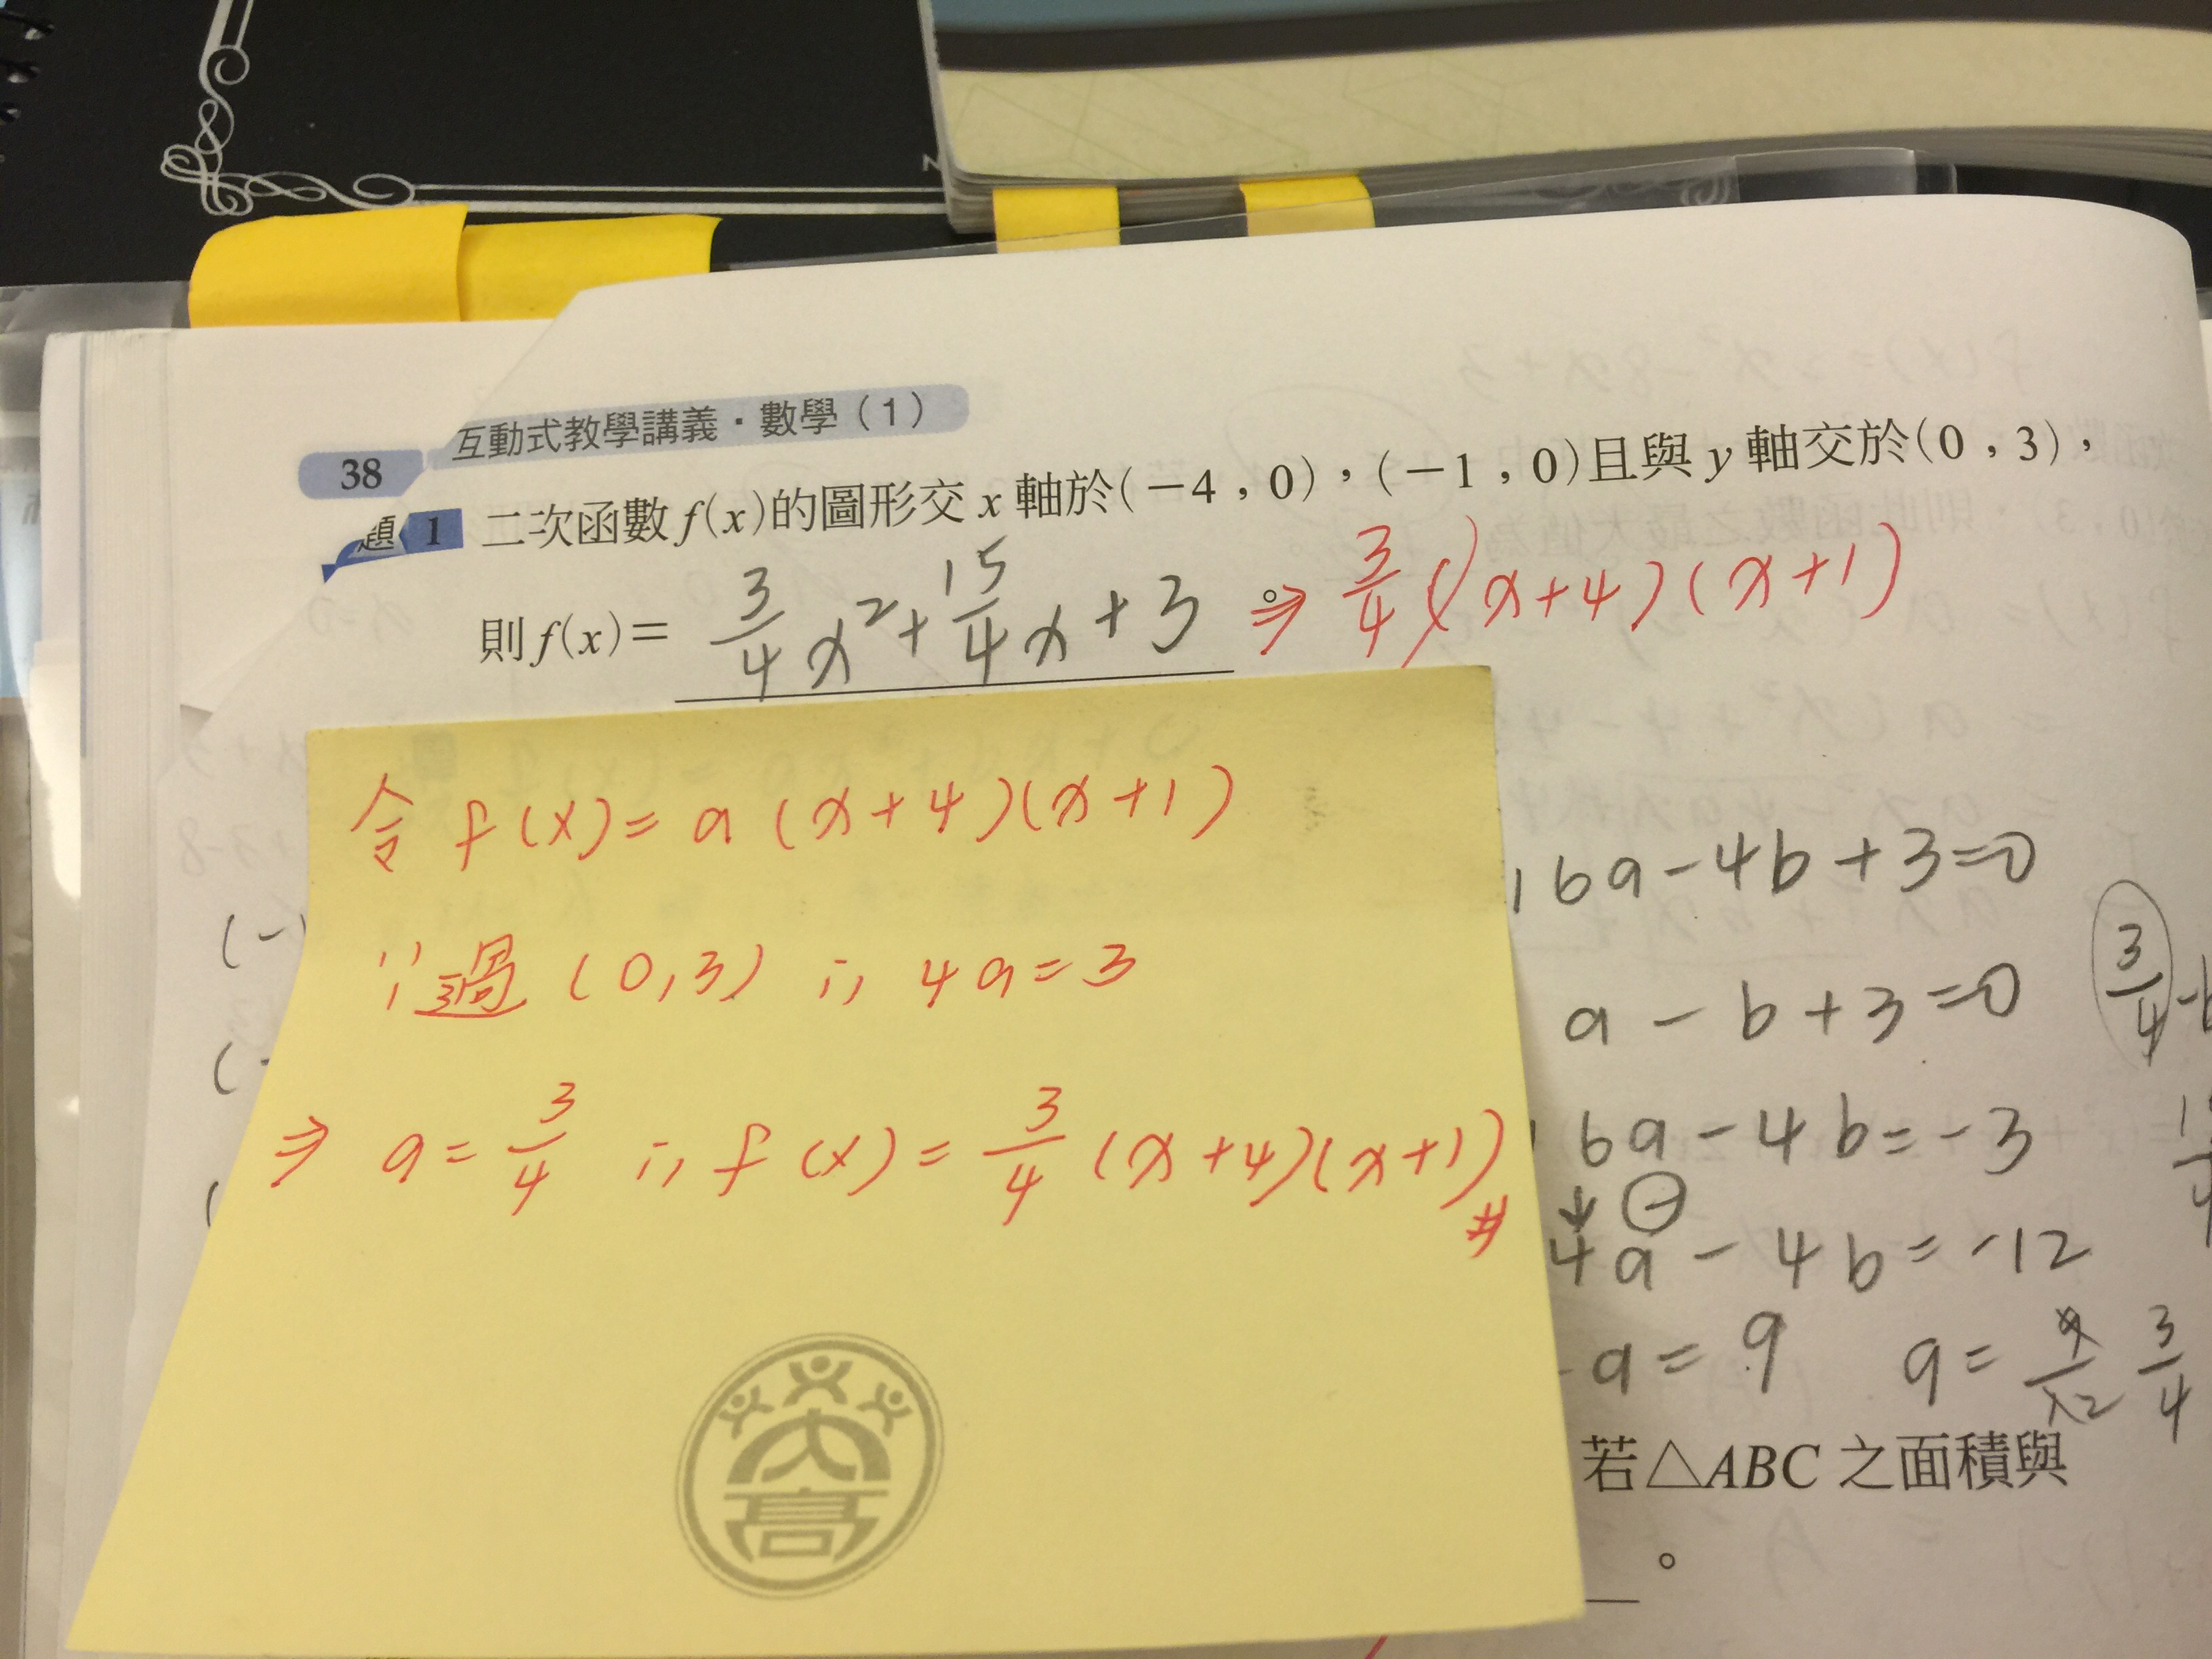 38 互動式教學講義・數學（1）
題 1 二次函數 f(x)的圖形交 x 軸於(－4 , 0)，(－1 , 0)且與 y 軸交於(0 , 3)，
則 f(x)＝ 3/4 x²+15/4 x+3 。 ⇒ 3/4 (x+4)(x+1)
令 f(x)= a(x+4)(x+1)
∵過 (0,3) ∴ 4a=3
⇒ a= 3/4 ∴ f(x)= 3/4 (x+4)(x+1) #
大高
16a-4b+3=0
a-b+3=0
16a-4b=-3
4a-4b=-12
a=9 a= 9/12 3/4
3/4
若△ABC 之面積與
。